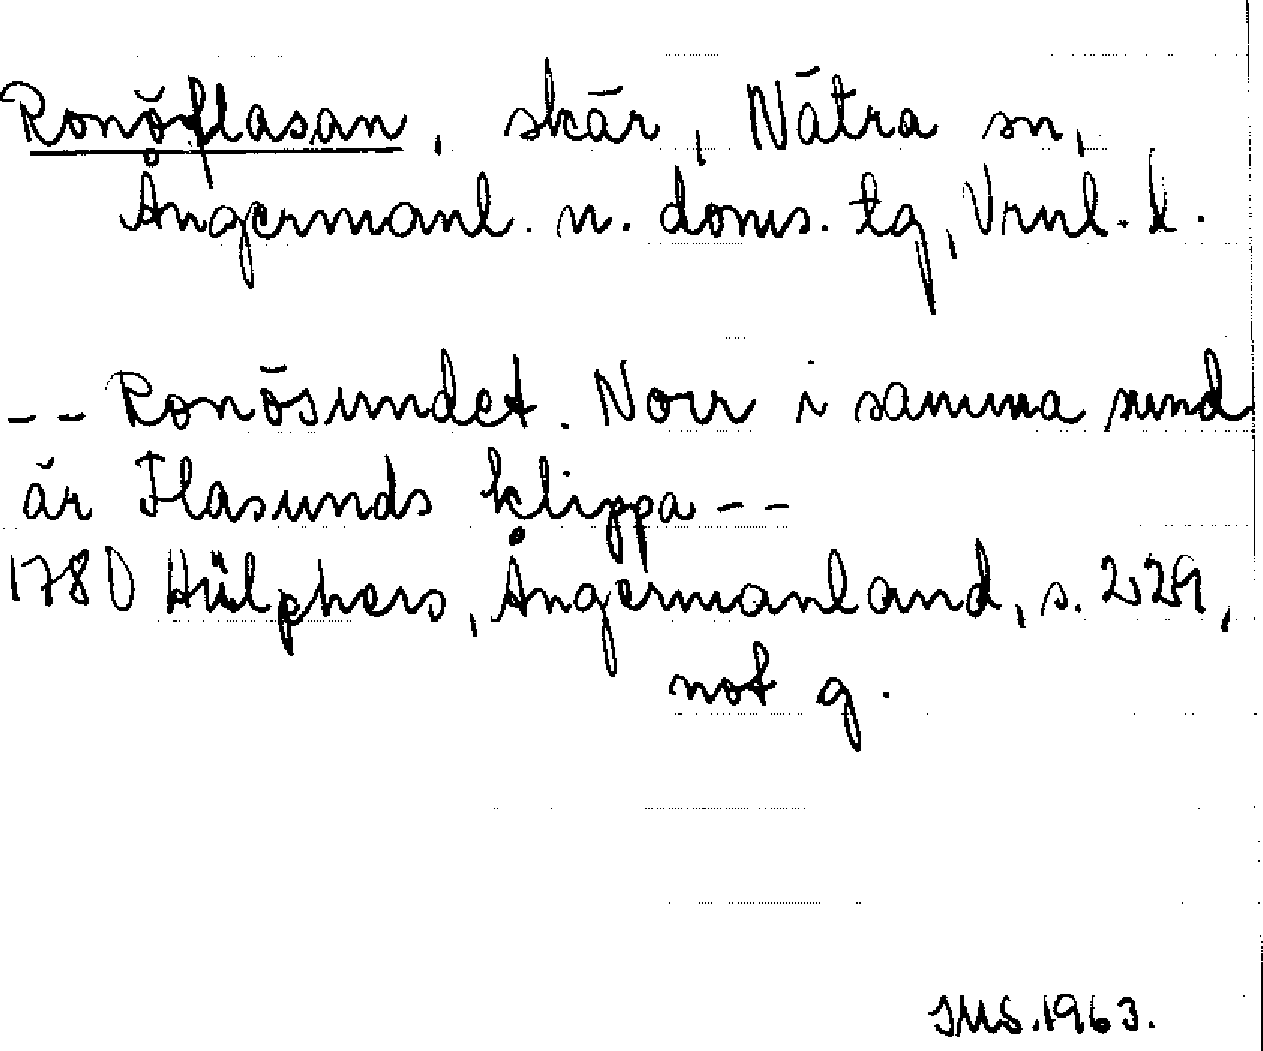 Ronöflasan, skär, Nätra sn,
Ångermanl. n. doms. tg, Vrnl. l.
-- Ronösundet. Norr i samma sund
är Flasunds klippa --
1780 Hülphers, Ångermanland, s. 229,
not q.
JMS. 1963.